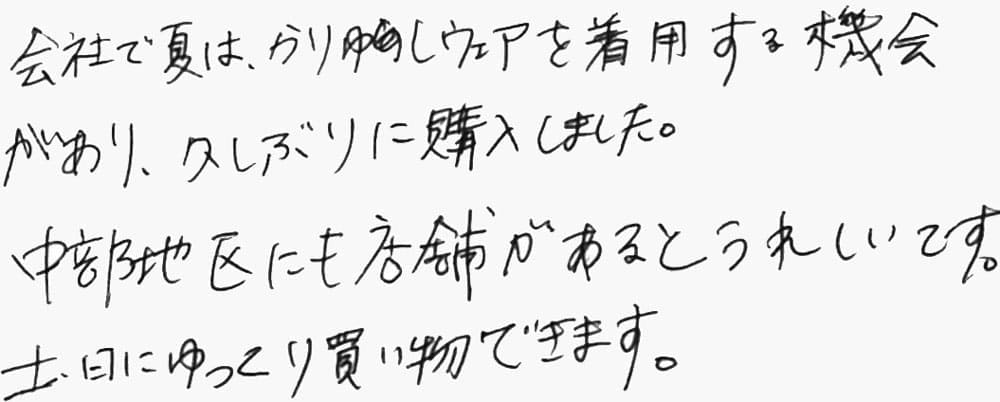 会社で夏は、かりゆしウェアを着用する機会
があり、久しぶりに購入しました。
中部地区にも店舗があるとうれしいです。
土、日にゆっくり買い物できます。